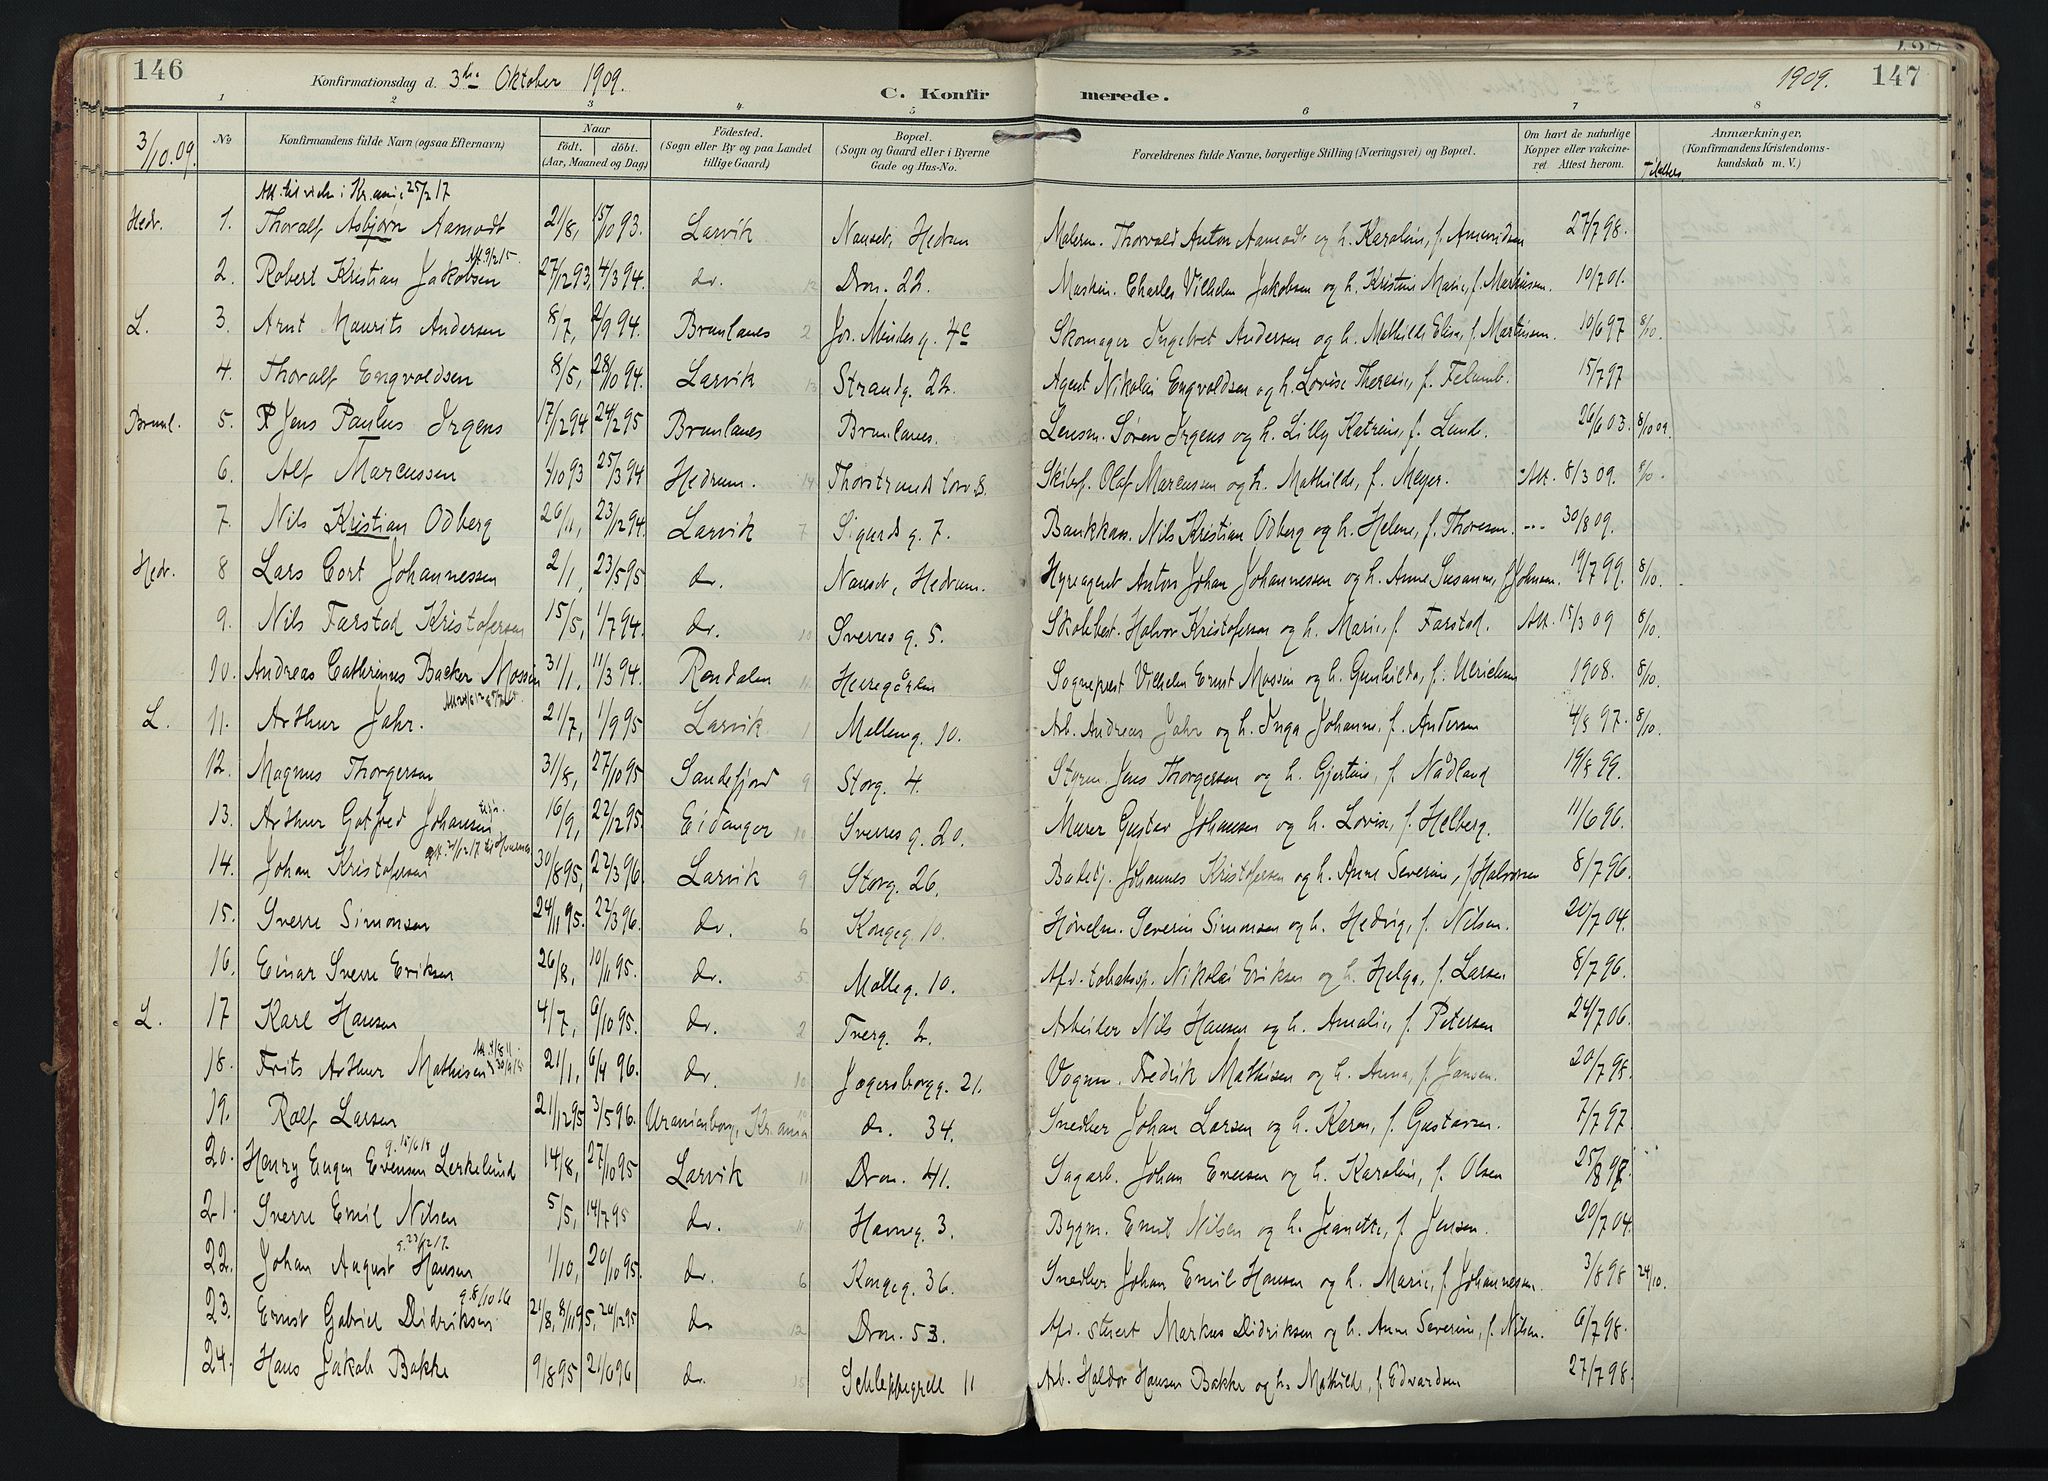 146
Konfirmationsdag d. 3die Oktober 1909.
C. Konfir
merede.
1909. 147
1 2 3 4 5 6 7 8
3/10.09. No Konfirmandens fulde Navn (ogsaa Efternavn) Naar födt. döbt. (Aar, Maaned og Dag) Födested. (Sogn eller By og paa Landet tillige Gaard) Bopæl. (Sogn og Gaard eller i Byerne Gade og Hus-No. Forældrenes fulde Navne, borgerlige Stilling (Næringsvei) og Bopæl. Om havt de naturlige Kopper eller vaccineret Attest herom. Anmærkninger. (Konfirmandens Kristendomskundskab m. V.)
Att. til vielse i Kr.ania 25/2 17
Hedr. 1. Thoralf Asbjørn Aamodt 21/8, 15/10 93. Larvik Nanset, Hedrum Malerm. Thorvald Anton Aamodt og h. Karoline, f. Amundsen 27/7 98.
2. Robert Kristian Jakobsen 27/12 93, 4/3 94. do. 12 Dron. 22. Maskin. Charles Vilhelm Jakobsen og h. Kristine Marie, f. Markussen. 10/7 01.
L. 3. Arnt Maurits Andersen 8/7, 2/9 94. Brunlanes 2 Jos. Mindes g. 4c Skomager Ingebret Andersen og h. Mathilde Elisa, f. Martinsen. 10/6 97 8/10.
4. Thoralf Engvoldsen 8/5, 28/10 94. Larvik 13 Strandg. 22. Agent Nikolai Engvoldsen og h. Lovise Therese, f. 15/7 97
Brunl. 5. Jens Paulus Irgens 17/12 94 24/2 95 Brunlanes Brunlanes. Lensm. Søren Irgens og h. Lilly Katrine, f. Lund. 26/6 03. 8/10 09.
6. Alf Marcussen 1/10 93 25/3 94 Hedrum. 14 Thorstrands torv 8. Skibsf. Olaf Marcussen og h. Mathilde, f. Meyer. Att. 8/3 09. 8/10.
7. Nils Kristian Odberg 26/11, 23/12 94. Larvik 7 Sigurds g. 7. Bankkass. Nils Kristian Odberg og h. Helene, f. Thoresen. 30/8 09.
Hedr. 8 Lars Cort Johannessen 2/1, 23/5 95 do. Nanset, Hedrum. Hyreagent Anton Johan Johannessen og h. Anne Susanne, f. Johnsen. 19/7 99. 8/10.
9. Nils Farstad Kristofersen 15/5, 1/7 94. do. 10 Sverres g. 5. Skolebest. Halvor Kristofersen og h. Marie, f. Farstad. Att. 15/3 09 8/10.
10. Andreas Cathrinus Backer Mossin 31/1, 11/3 94. Rendalen 11 Herregården Sogneprest Vilhelm Ernst Mossin og h. Gunhilda, f. Ulrichsen 1908. 8/10.
L. 11. Arthur Jahr. 21/7, 1/9 95 Larvik 1 Mellemg. 10. Arb. Andreas Jahr og h. Inga Johanne, f. Andersen 4/8 97. 8/10.
12. Magnus Thorgersen 31/8, 27/10 95 Sandefjord 9 Storg. 4. Styrm. Jens Thorgersen og h. Gjertine, f. Nådland 19/8 99.
13. Arthur Gotfred Johansen 16/9, 22/12 95. Eidanger 10 Sverres g. 20. Murer Gustav Johansen og h. Lovise, f. Helberg. 11/6 96.
14. Johan Kristofersen 30/8 95, 22/3 96. Larvik 9 Storg. 26. Johannes Kristofersen og h. Anne Severine, f. Halvorsen 8/7 96.
15. Sverre Simonsen 24/11 95. 22/3 96. do. 6 Kongeg. 10. Høvelm. Severin Simonsen og h. Hedvig, f. Nilsen. 20/7 04.
16. Einar Sverre Eriksen 26/8, 10/11 95. do. 5 Mølleg. 10. Afd. tobaksp. Nikolai Eriksen og h. Helga, f. Larsen 8/7 96.
L. 17 Karl Hansen 4/7, 6/10 95. do. 2 Tverg. 2. Arbeider Nils Hansen og h. Amalie, f. Petersen 24/7 06.
18. Frits Arthur Mathisen 21/1, 6/4 96. do. 10 Jægersborgg. 21. Vognm. Fredrik Mathisen og h. Anna, f. Jansen. 20/7 98.
19. Rolf Larsen 21/12 95 3/5 96. Uranienborg, Kr.ania do. 34. Snedker Johan Larsen og h. Karen, f. Gustavsen. 7/7 97
g. 15/6 18
20. Henry Eugen Evensen Lerkelund 14/8, 27/10 95 Larvik 11 Dron. 41. Sagarb. Johan Evensen og h. Karoline, f. Olsen 25/8 97.
21. Sverre Emil Nilsen 5/5, 14/7 95 do. 11 Havneg. 3. Bygm. Emil Nilsen og h. Jeanette, f. Jensen. 20/7 04.
22. Johan August Hansen 1/10, 20/10 95. do. 6 Kongeg. 36. Snedker Johan Emil Hansen og h. Marie, f. Johannesen. 3/8 98 24/10.
g. 8/10 16
23. Ernst Gabriel Didriksen 21/8, 8/11 95, 26/12 95 do 12 Dron. 53. Afd. stuert Markus Didriksen og h. Anne Severine, f. Nilsen. 6/7 98.
24. Hans Jakob Bakke 9/8 95 21/6 96 do. 15 Schleppegrell 11 Arb. Haldor Hansen Bakke og h. Mathilde, f. Edvardsen 27/7 98.